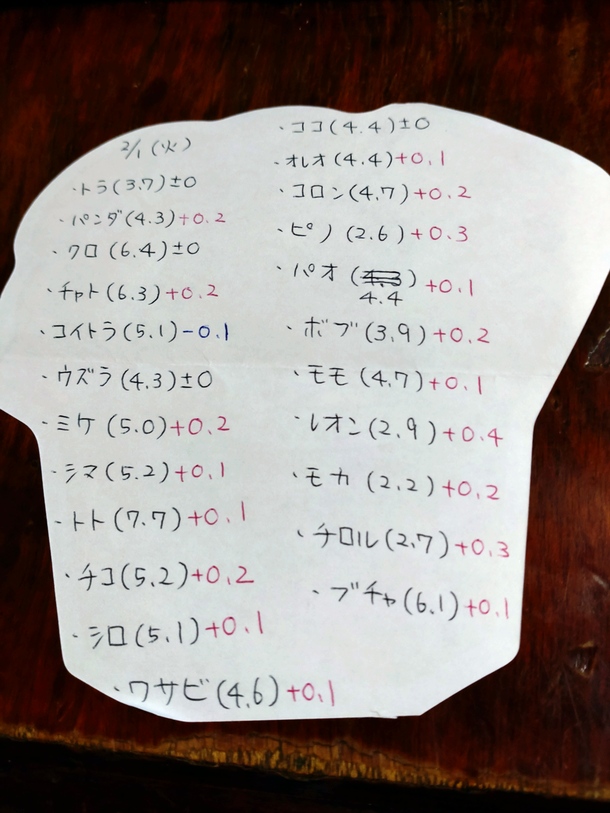 2/1 (火)
・トラ(3.7)±0
・パンダ(4.3)+0.2
・クロ(6.4)±0
・チャト(6.3)+0.2
・コイトラ(5.1)-0.1
・ウズラ(4.3)±0
・ミケ(5.0)+0.2
・シマ(5.2)+0.1
・トト(7.7)+0.1
・チコ(5.2)+0.2
・シロ(5.1)+0.1
・ワサビ(4.6)+0.1
・ココ(4.4)±0
・オレオ(4.4)+0.1
・コロン(4.7)+0.2
・ピノ(2.6)+0.3
・パオ(4.3)+0.1
4.4
・ボブ(3.9)+0.2
・モモ(4.7)+0.1
・レオン(2.9)+0.4
・モカ(2.2)+0.2
・チロル(2.7)+0.3
・ブチャ(6.1)+0.1